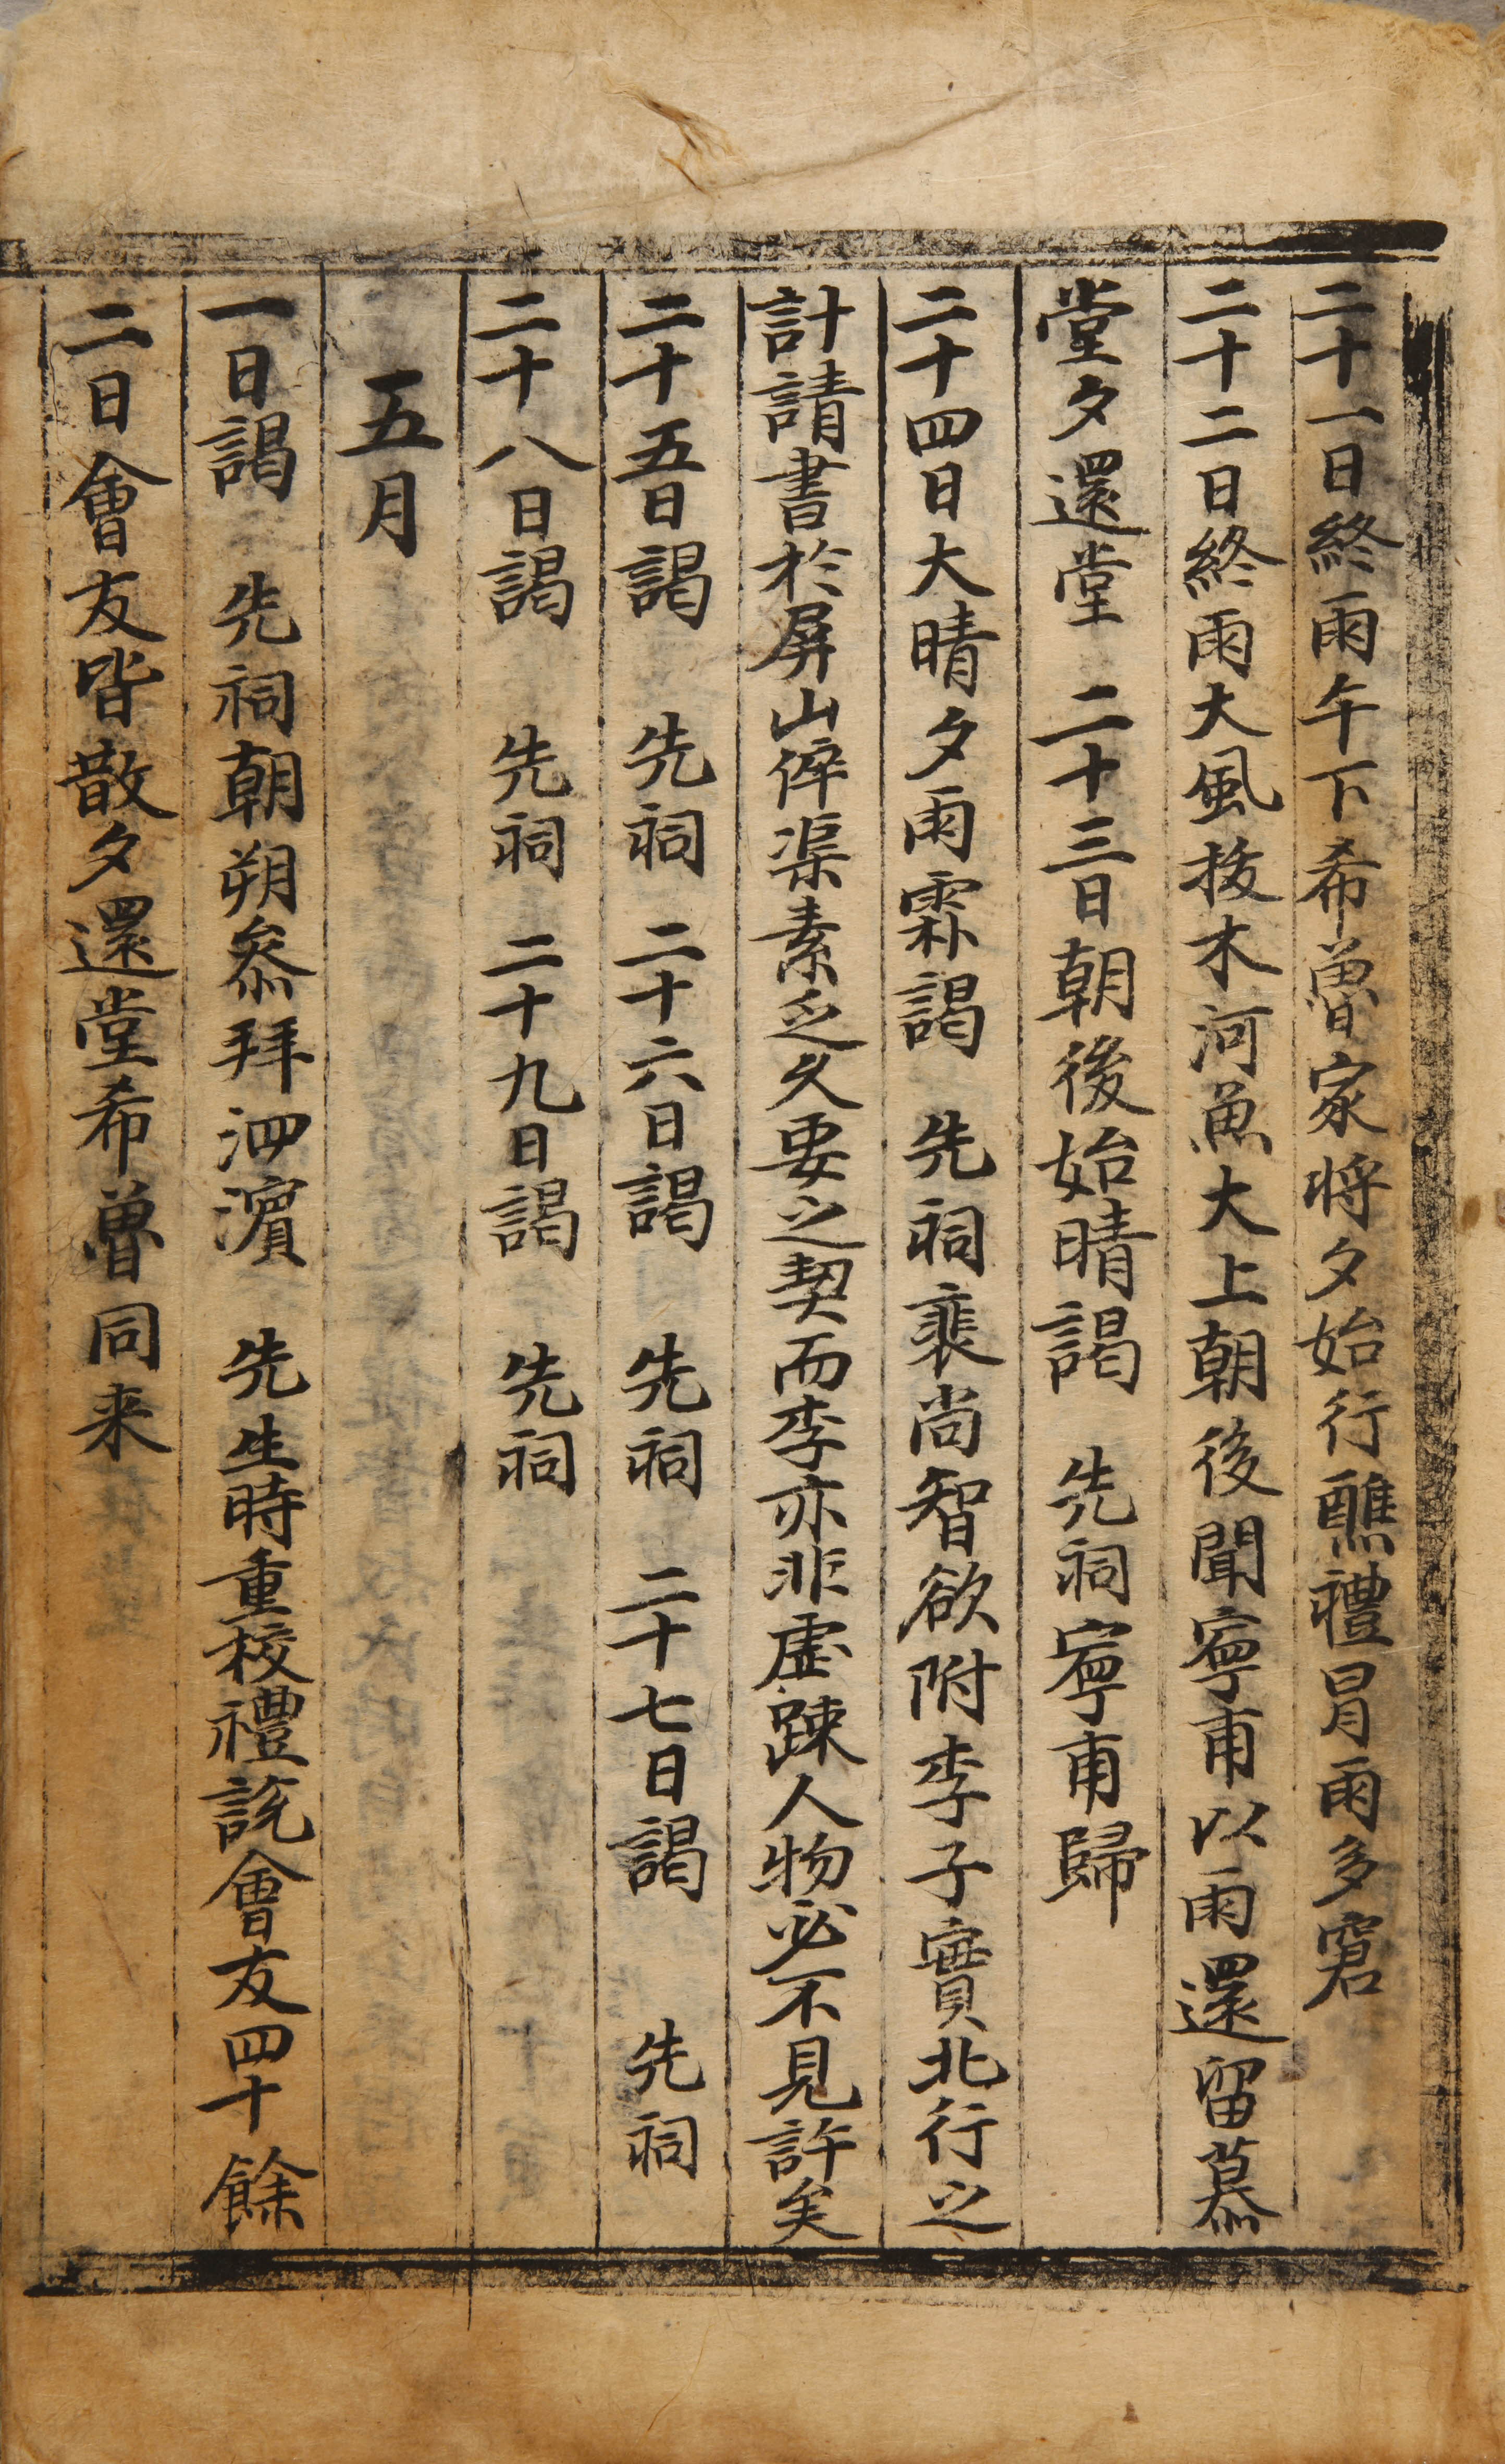 二十一日終雨午下希魯家將夕始行醮禮冒雨多窘
二十二日終雨大風拔木河魚大上朝後聞寧甫以雨還留慕
堂夕還堂 二十三日朝後始晴謁 先祠寧甫歸
二十四日大晴夕雨霖謁 先祠裵尚智欲附李子實北行之
計請書於屏山倅渠素乏久要之契而李亦非虛踈人物必不見許矣
二十五日謁 先祠 二十六日謁 先祠 二十七日謁 先祠
二十八日謁 先祠 二十九日謁 先祠
五月
一日謁 先祠朝朔叅拜泗濱 先生時重校禮說會友四十餘
二日會友皆散夕還堂希魯同来